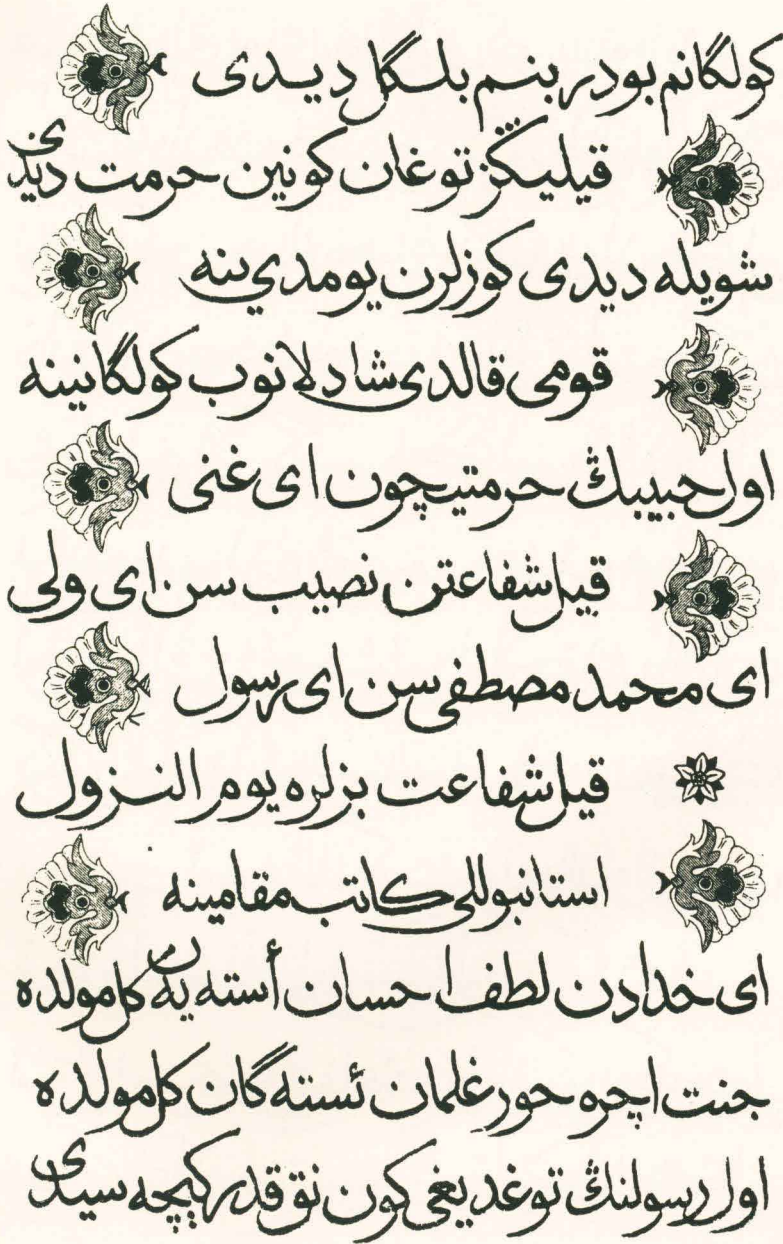 كولكانم بودر بنم بلكل ديدى
قيليڭز توغان كونين حرمت ديدى
شويله ديدى كوزلرن يومدي ينه
قومى قالدى شادلانوب كولكانينه
اول حبيبڭ حرمتيچون اى غنى
قيل شفاعتن نصيب سن اى ولى
اى محمد مصطفى سن اى رسول
قيل شفاعت بزلره يوم النزول
استانبوللى كاتب مقامينه
اى خدادن لطف احسان أسته يەن كل مولده
جنت اچره حور غلمان ئسته گان كل مولده
اول رسولنڭ توغديغى كون نق قدر كيچه سيدى